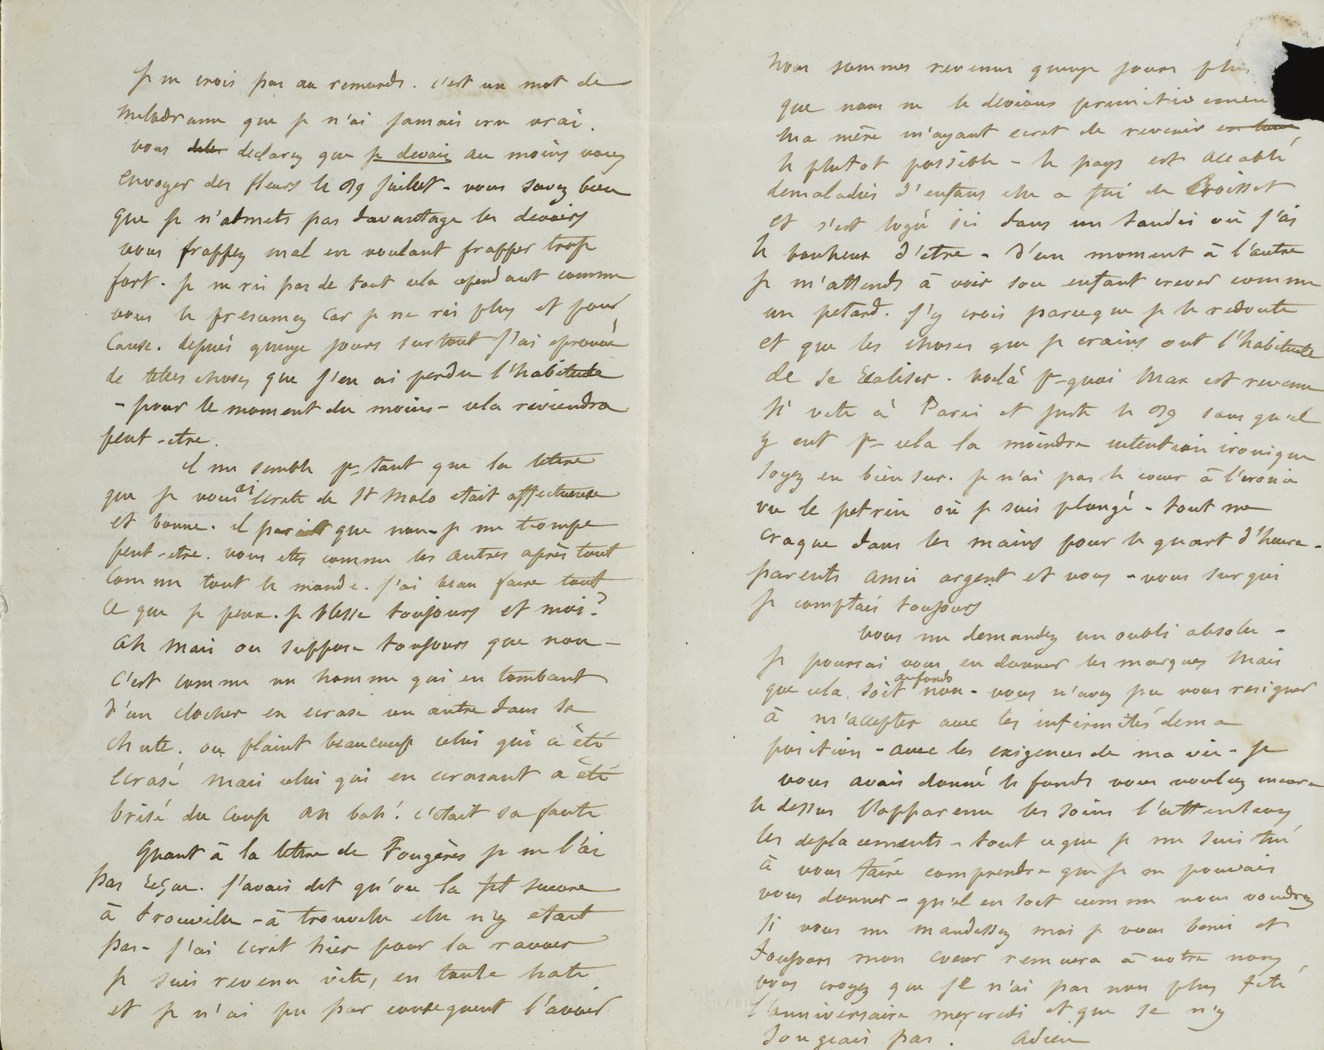 Je ne crois pas au remords. c'est un mot de
melodrame que je n'ai jamais cru vrai.
vous declarez que je devais au moins vous
envoyer des fleurs le 29 juillet - vous savez bien
que je n'admets pas davantage les devoirs
vous frappez mal en voulant frapper trop
fort. je ne ris pas de tout cela cependant comme
vous le presumez car je ne ris plus et pour
cause. depuis quinze jours surtout j'ai eprouvé
de telles choses que j'en ai perdu l'habitude
- pour le moment du moins - cela reviendra
peut-etre.
il me semble pr-tant que la lettre
que je vous ai ecrite de St Malo etait affectueuse
et bonne. il parait que non - je me trompe
peut-etre. vous etes comme les autres après tout
comme tout le monde. j'ai beau faire tout
ce que je peux. je blesse toujours et moi?
ah mais on suppose toujours que non -
c'est comme un homme qui en tombant
d'un clocher en ecrase un autre dans sa
chute. on plaint beaucoup celui qui a été
ecrasé mais celui qui en ecrasant a été
brisé du coup ah bah! c'etait sa faute
Quant à la lettre de Fougères je ne l'ai
pas reçue. j'avais dit qu'on la fit suivre
à trouville - à trouville elle n'y etant
pas - j'ai ecrit hier pour la ravoir
je suis revenu vite, en toute hate
et je n'ai pu par consequent l'avoir
Nous sommes revenus quinze jours plus
que nous ne le devions primitivement
ma mère m'ayant ecrit de revenir
le plutot possible - le pays est accablé
de maladies d'enfans elle a fui de Croisset
et s'est logée ici dans un taudis où j'ai
le bonheur d'etre - d'un moment à l'autre
je m'attends à voir son enfant crever comme
un petard. j'y crois parceque je le redoute
et que les choses que je crains ont l'habitude
de se realiser. voilà pr-quoi Max est revenu
si vite à Paris et juste le 29 sans qu'il
y eut pr cela la moindre intention ironique
soyez en bien sur. je n'ai pas le coeur à l'ironie
vu le petrin où je suis plongé - tout me
craque dans les mains pour le quart d'heure -
parents amis argent et vous - vous sur qui
je comptais toujours
vous me demandez un oubli absolu -
je pourrai vous en donner les marques mais
que cela soit au fonds non - vous n'avez pu vous resigner
à m'accepter avec les infirmités de ma
position - avec les exigences de ma vie - je
vous avais donné le fonds vous vouliez encore
le dessus l'apparence les soins l'attention
les deplacements - tout ce que je me suis tué
à vous faire comprendre que je ne pouvais
vous donner - qu'il en soit comme vous voudrez
si vous me maudissez moi je vous benis et
toujours mon coeur remuera à votre nom
vous croyez que je n'ai pas non plus fêté
l'anniversaire mercredi et que je n'y
songeais pas. Adieu